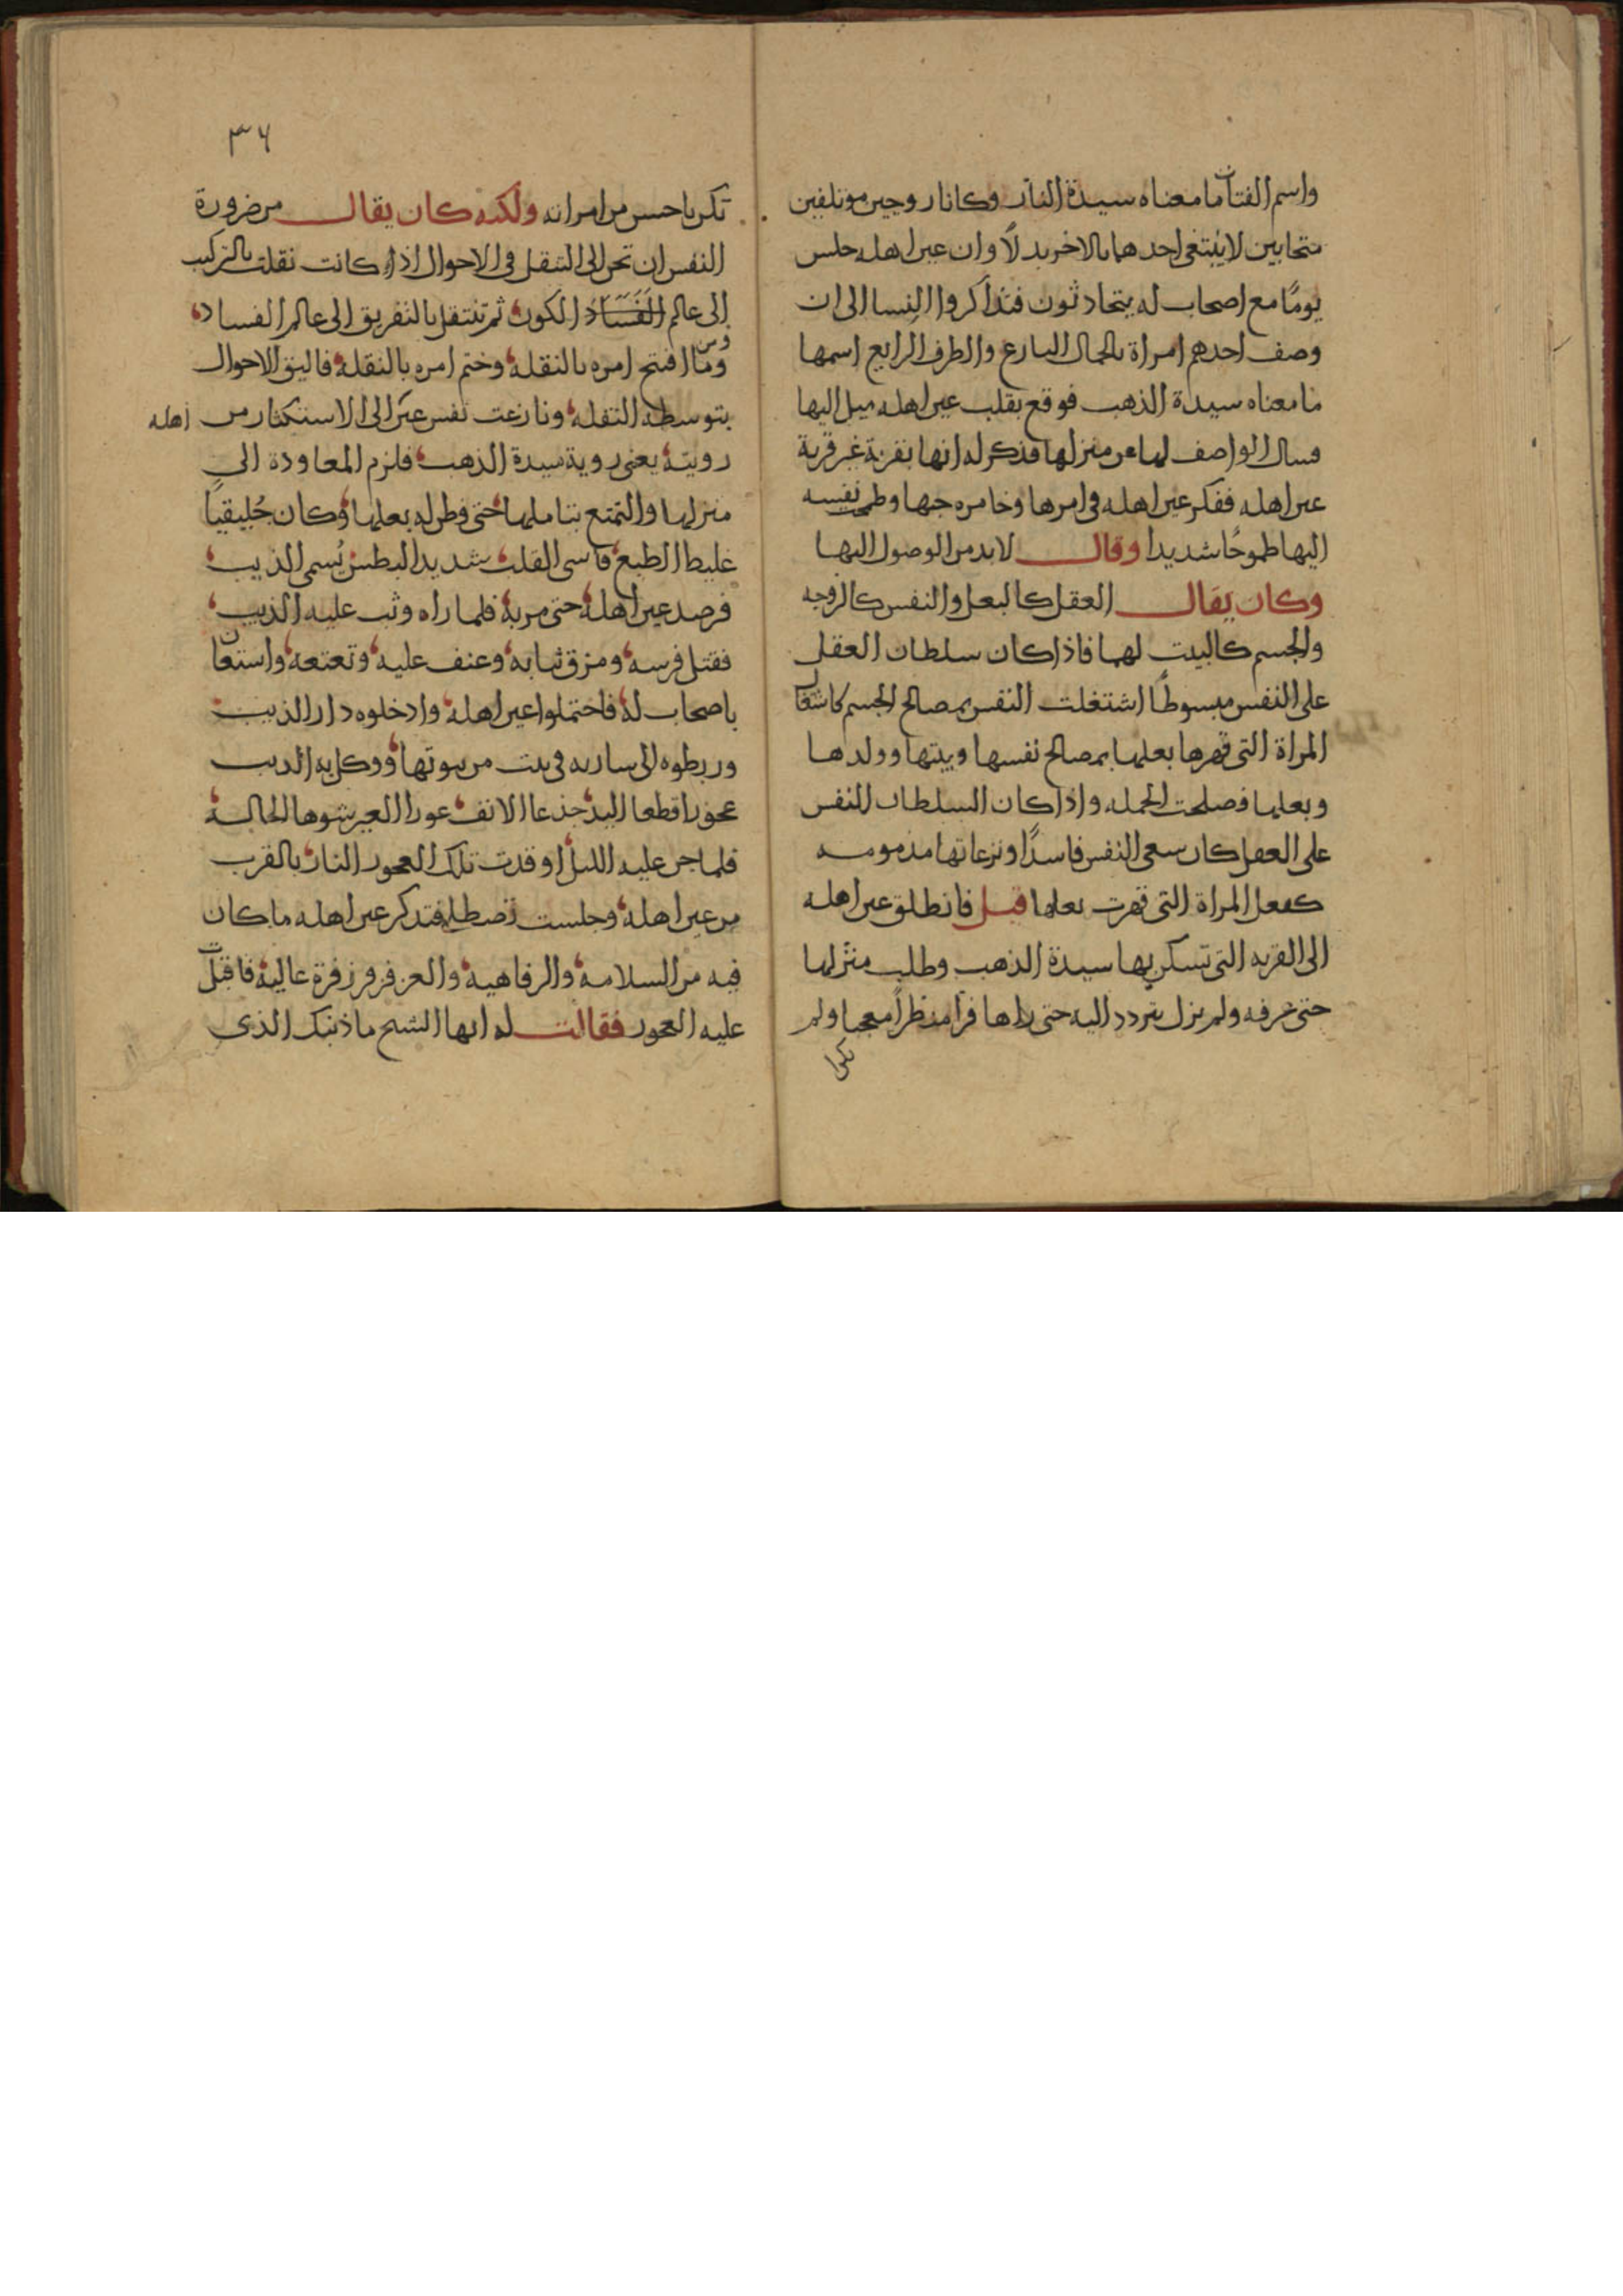 واسم الفتاة ما معناه سيدة الناز وكانا زوجين موتلفين
متحابين لا يبتغي احدهما بالاخر بدلاً وان عين اهله جلس
يومًا مع اصحاب له يتحادثون فتذاكروا النسا الى ان
وصف احدهم امراة بالجمال البارع والطرف الرايع اسمها
ما معناه سيدة الذهب فوقع بقلب عين اهله ميل اليها
فسال الواصف لها عن منزلها فذكر له انها بقرية غير قرية
عين اهله ففكر عين اهله في امرها وخامره حبها وطمحت نفسه
اليها طموحًا شديدا وقال لا بد من الوصول اليها
وكان يقال العقل كالبعل والنفس كالزوجه
والجسم كالبيت لهما فاذا كان سلطان العقل
على النفس مبسوطًا اشتغلت النفس بمصالح الجسم كاشتغال
المراة التي قهرها بعلها بمصالح نفسها وبيتها وولدها
وبعلها فصلحت الجمله واذا كان السلطان للنفس
على العقل كان سعي النفس فاسدًا ونزعاتها مذمومه
كفعل المراة التي قهرت بعلها قيل فانطلق عين اهله
الى القريه التي تسكن بها سيدة الذهب وطلب منزلها
حتى عرفه ولم يزل يتردد اليه حتى راها فراي منظراً معجبا ولم
تكن
٣٦
تكن باحسن من امراته ولكنه كان يقال من ضرورة
النفس ان تحن الى التنقل في الاحوال اذ كانت نقلت بالتركيب
الى عالم الفساد الكون ثم تنتقل بالتفريق الى عالم الفساد
ومن
وما افتتح امره بالنقلة وختم امره بالنقلة فاليق الاحوال
بتوسطه النقله ونازعت نفس عين الى الاستكثار من اهله
رويته يعني روية سيدة الذهب فلزم المعاودة الى
منزلها والتمتع بتاملها حتى فطن له بعلها وكان جُليقيًا
غليظ الطبع قاسي القلب شديد البطش يُسمى الذيب
فرصد عين اهله حتى مر به فلما راه وثب عليه الذيب
فقتل فرسه ومزق ثيابه وعنف عليه وتعتعه واستعان
باصحاب له فاحتملوا عين اهله وادخلوه دار الذيب
وربطوه الى ساريه في بيت من بيوتها ووكل به الذيب
عجوزا قطعا اليد جذعا الانف عورا العين شوها الحاله
فلما جن عليه الليل اوقدت تلك العجوز النار بالقرب
من عين اهله وجلست تصطلي فتذكر عين اهله ما كان
فيه من السلامة والرفاهية والعز فزفر زفرة عالية فاقبلت
عليه العجوز فقالت له ايها الشيح ما ذنبك الذي